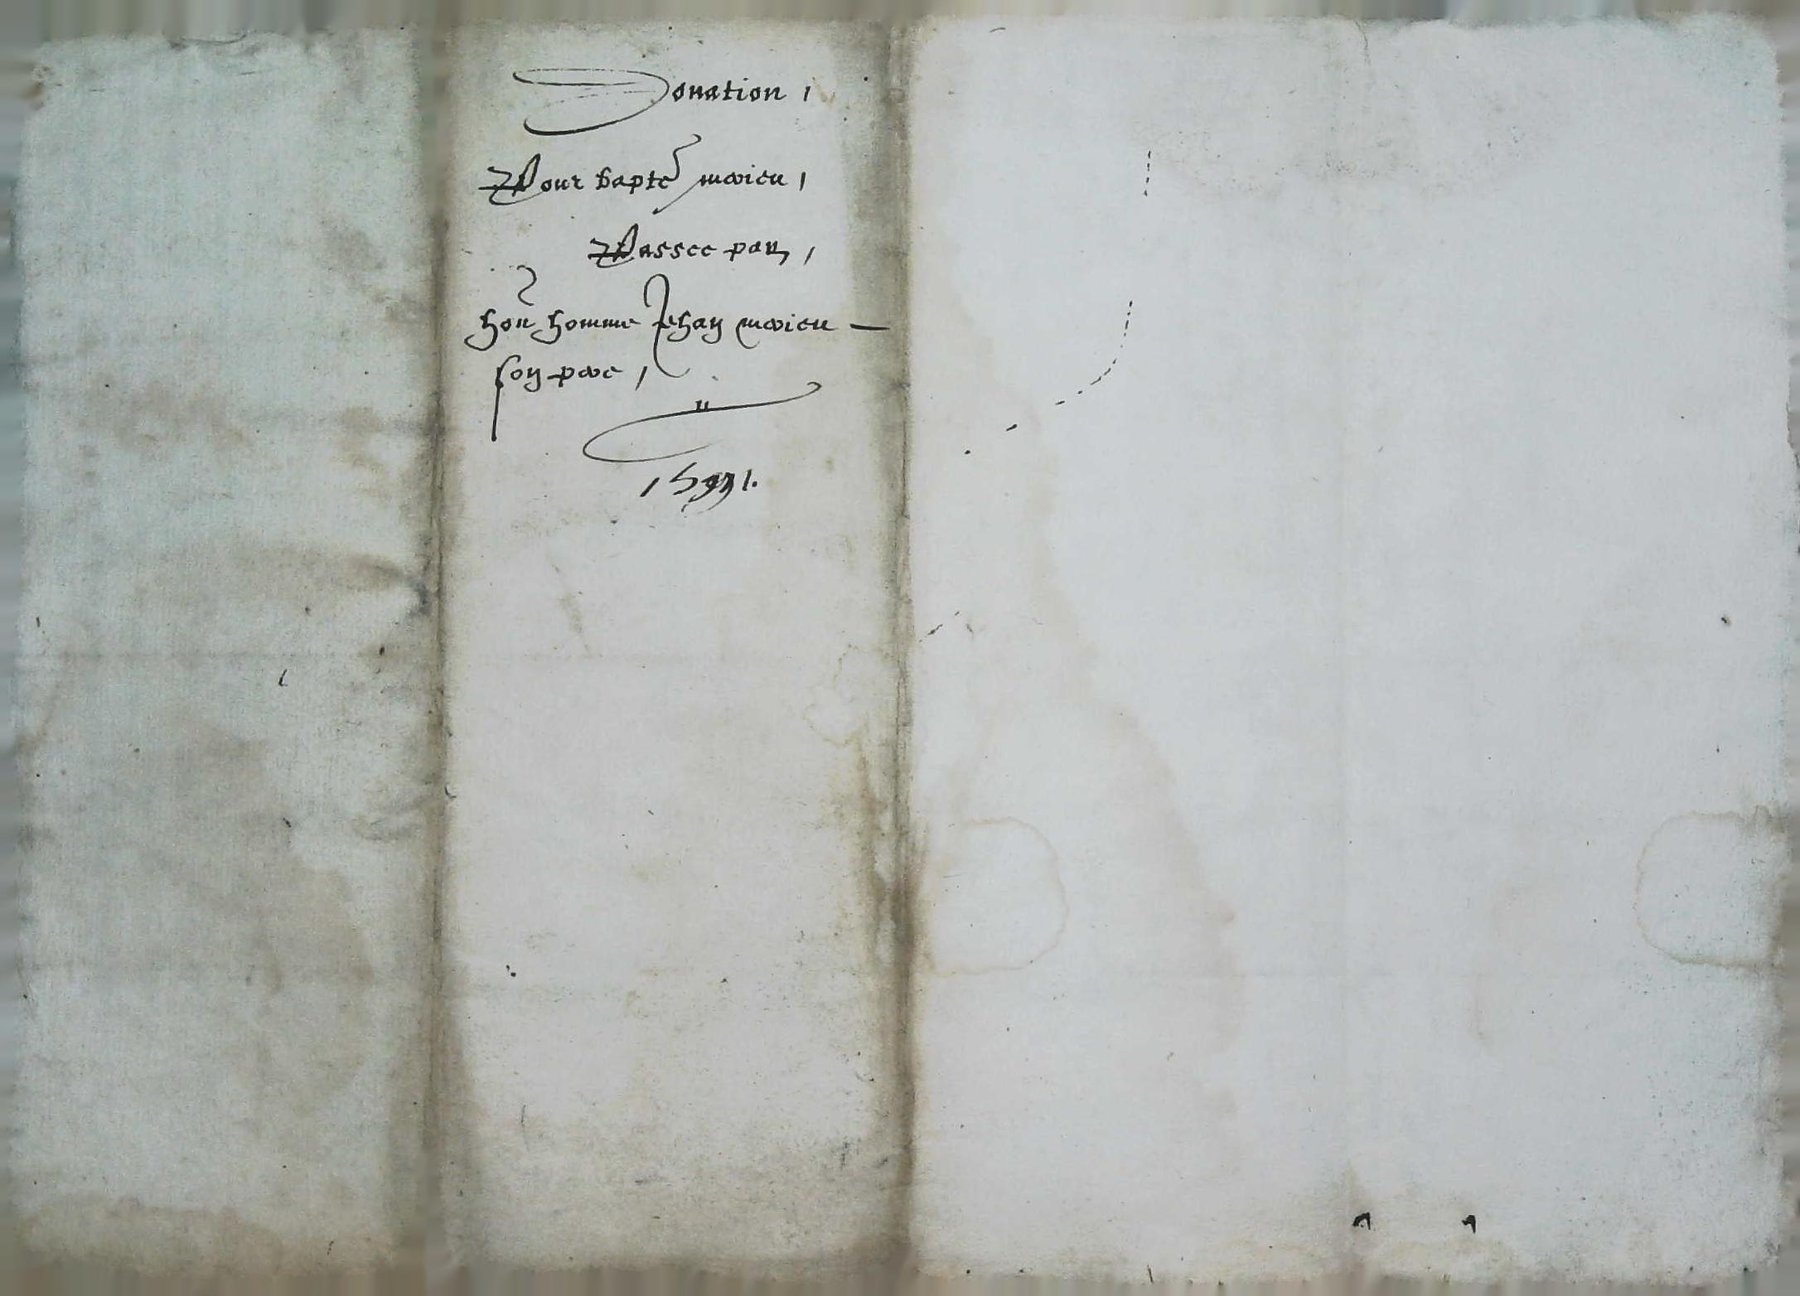 Donation,
Pour bapte merieu,
Passee par,
hon homme Jehan merieu —
son pere,
1599 1.